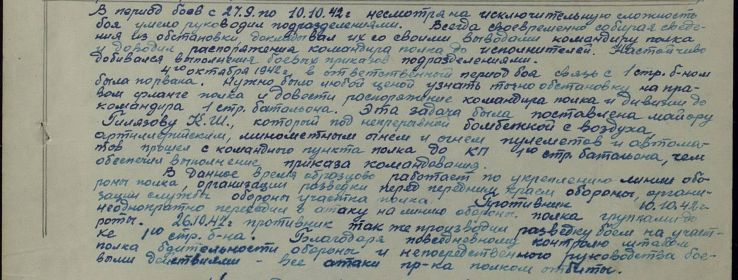 В период боев с 27.9. по 10.10.42 г несмотря на исключительную сложность
боя умело руководил подразделениями. Всегда своевременно собирая сведе-
ния из обстановки докладывал их со своими выводами командиру полка
и доводил распоряжения командира полка до исполнителей. Настойчиво
добивался выполнения боевых приказов подразделениями.
4го октября 1942 г. в ответственный период боя связь с 1 стр. б-ном
была порвана. Нужно было любой ценой узнать точно обстановку на пра-
вом фланге полка и довести распоряжение командира полка и дивизии до
командира 1 стр. батальона. Эта задача была поставлена майору
Гилязову К.Ш., который под непрерывной бомбежкой с воздуха,
артиллерийским, минометным огнем и огнем пулеметов и автома-
тов прошел с командного пункта полка до КП 1го стр. батальона, чем
обеспечил выполнение приказа командования.
В данное время образцово работает по укреплению линии обо-
роны полка, организации разведки перед передним краем обороны, органи-
зации службы обороны участка полка. Противник 10.10.42 г.
неоднократно переходил в атаку на линию обороны полка группами до
роты. 26.10.42 г противник так же производил разведку боем на участ-
ке 1го стр. б-на. Благодаря повседневному контролю штабом
полка бдительности обороны и непосредственного руководства бое-
выми действиями - все атаки пр-ка полком отбиты.